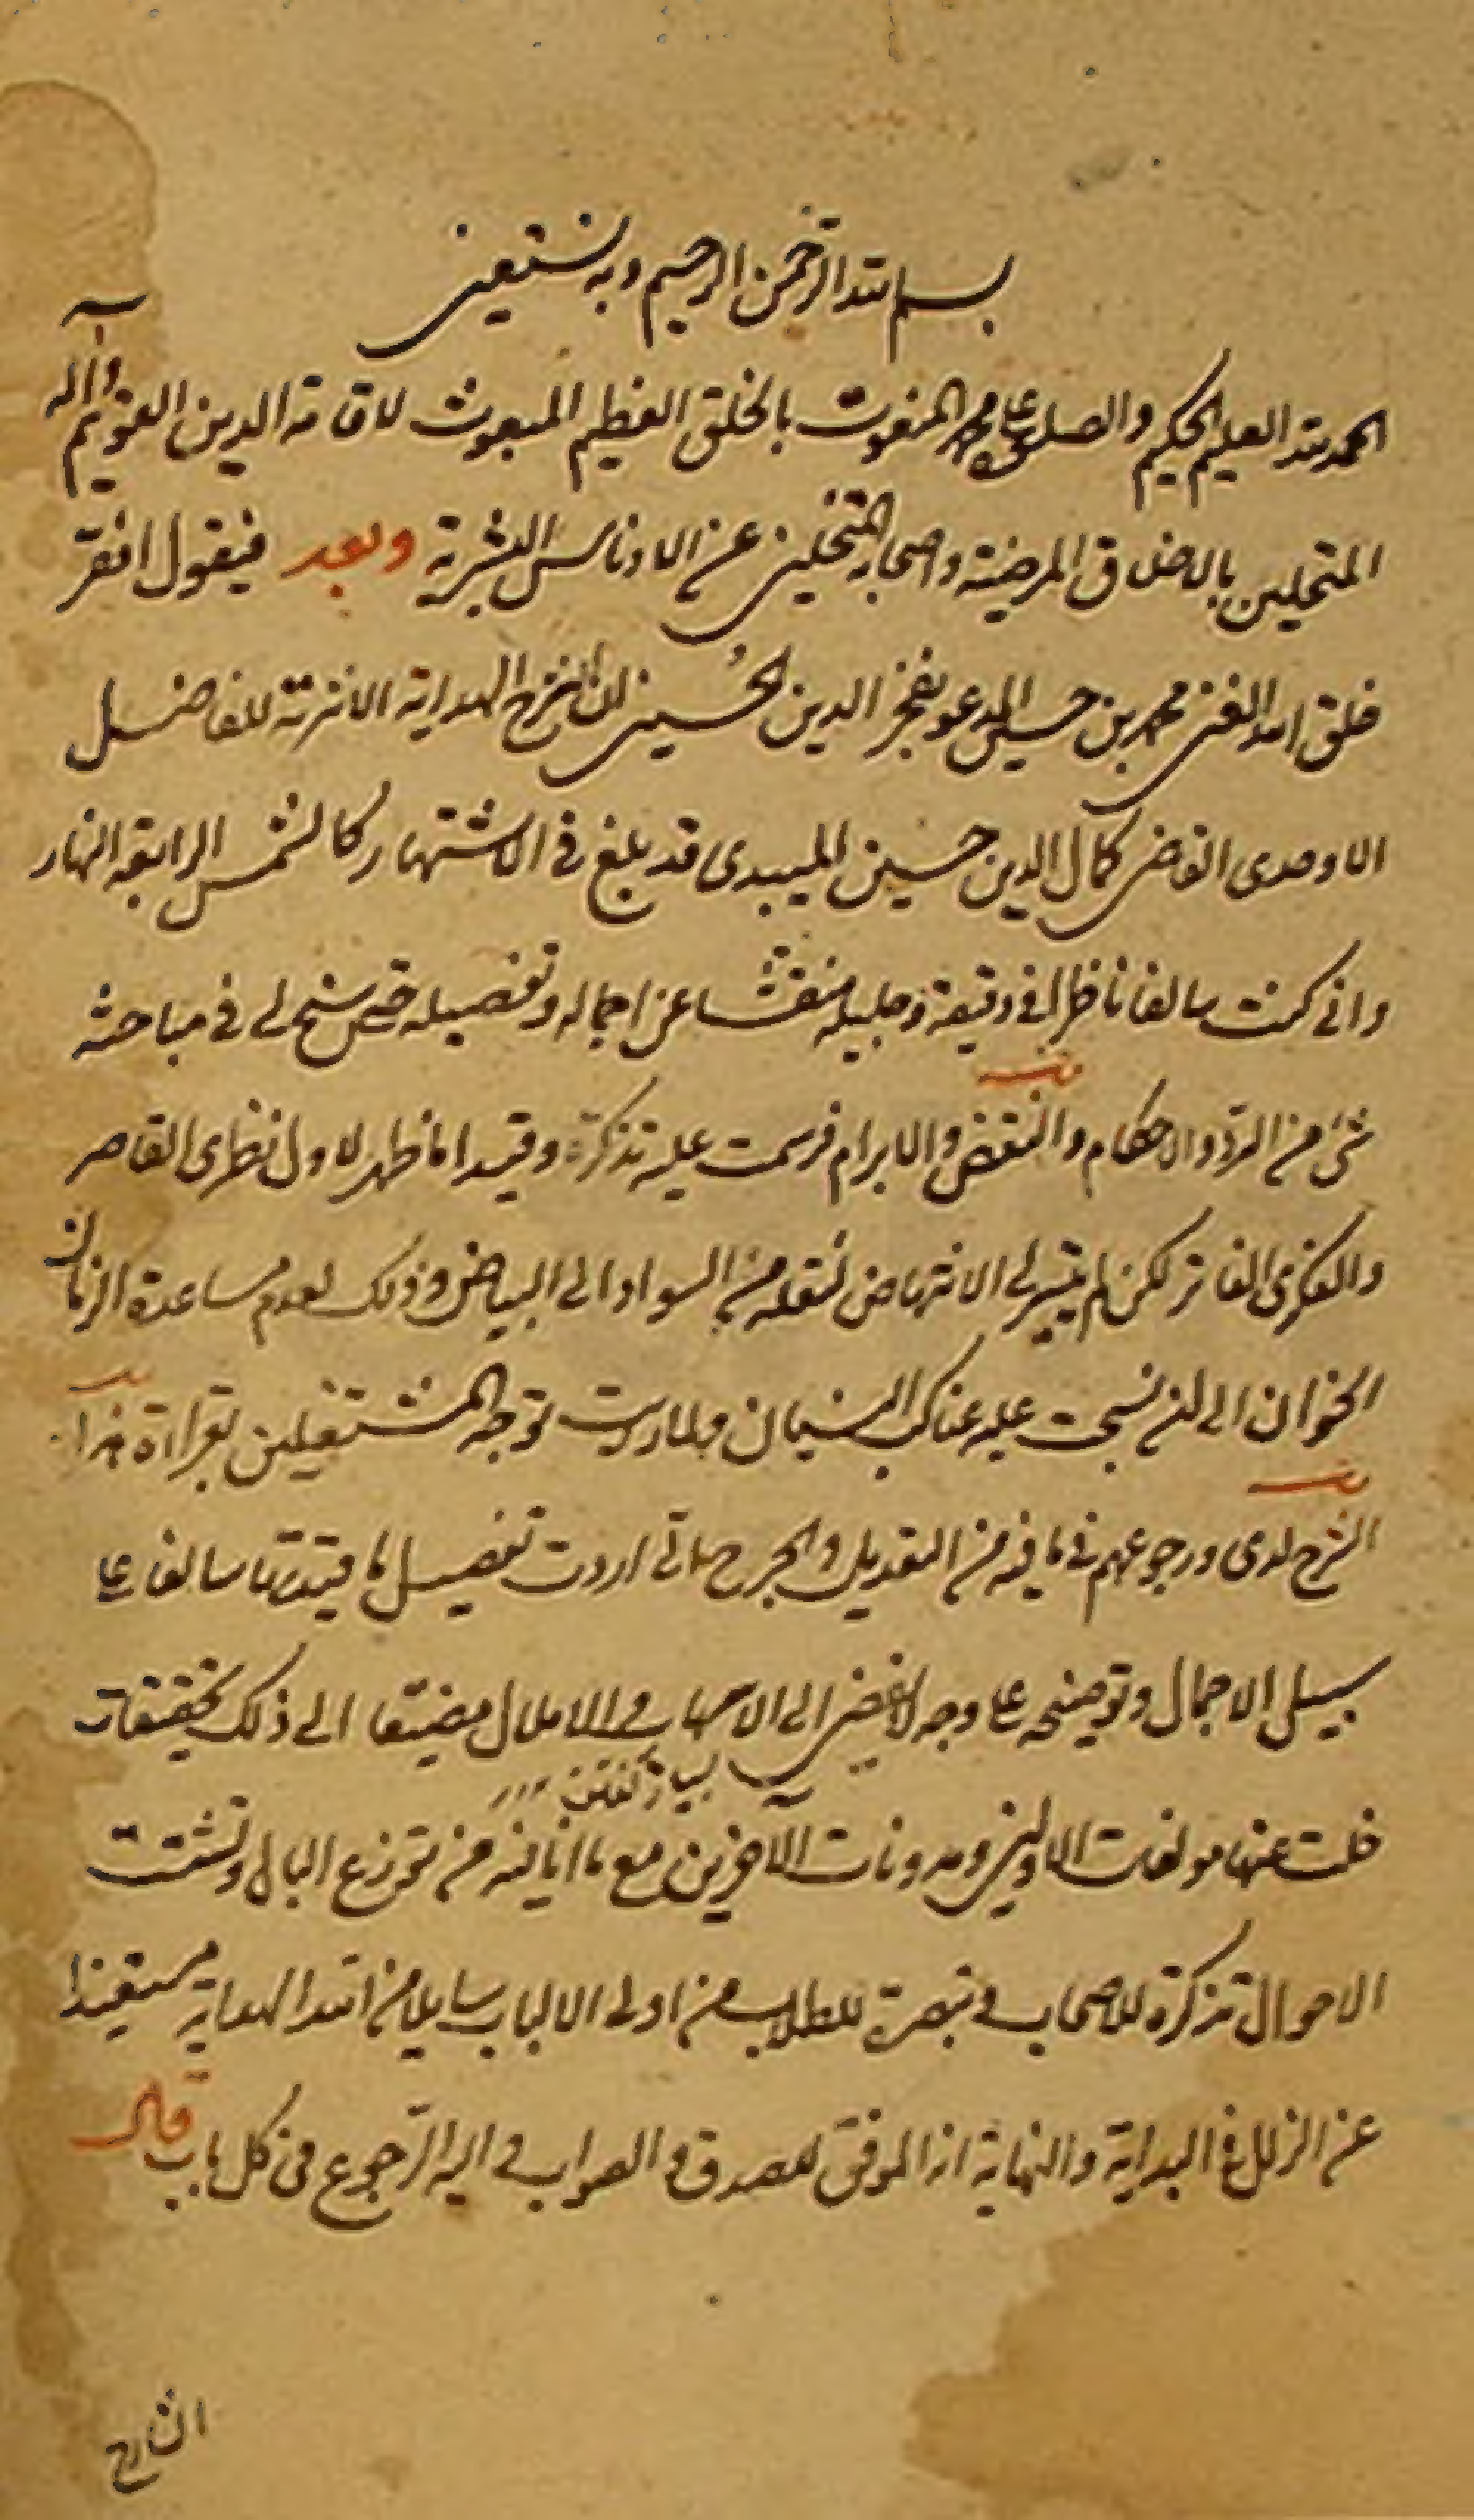 بسم الله الرحمن الرحيم وبه نستعين
الحمد لله العليم الحكيم والصلوة على محمد المنعوت بالخلق العظيم المبعوث لاقامة الدين القويم وآله
المتحلين بالاخلاق المرضية واصحابه المتخلين عن الادناس البشرية وبعد فيقول افقر
خلق الله الغنى محمد بن حسين المدعو بفخر الدين الحسينى ان شرح الهداية الاثيرية للفاضل
الاوحدى القاضى كمال الدين حسين الميبدى قد بلغ فى الاشتهار كالشمس الرابعة النهار
وانى كنت سالفا ناظرا فى دقيقه وجليله مفتشا عن اجماله وتفصيله حتى سنح لى فى مباحثه
شئ من الرد والاحكام والنقض والابرام فرسمت عليه تذكرة وقيدا ما ظهر لاول نظرى القاصر
وفكرى الفاتر لكن لم يتيسر لى الانتهاض لنقله من السواد الى البياض وذلك لعدم مساعدة الزمان
الخوان الى ان نسجت عليه عناكب النسيان ولما رايت توجه المشتغلين بقراءة هذا
الشرح لدى ورجوعهم فى ما فيه من التعديل والجرح الى اردت تفصيل ما قيدتها سالفا على
سبيل الاجمال وتوضيحه على وجه لا يفضى الى الاسهاب والاملال مضيفا الى ذلك تحقيقات
خلت عنها مولفات الاولين ومدونات الآخرين مع ما انا فيه من توزع البال وتشتت
الاحوال تذكرة للاصحاب وتبصرة للطلاب من اولى الالباب سايلا من الله الهداية مستعيذا
عن الزلل فى البداية والنهاية انه الموفق للصدق والصواب واليه الرجوع فى كل باب قال
الشارح